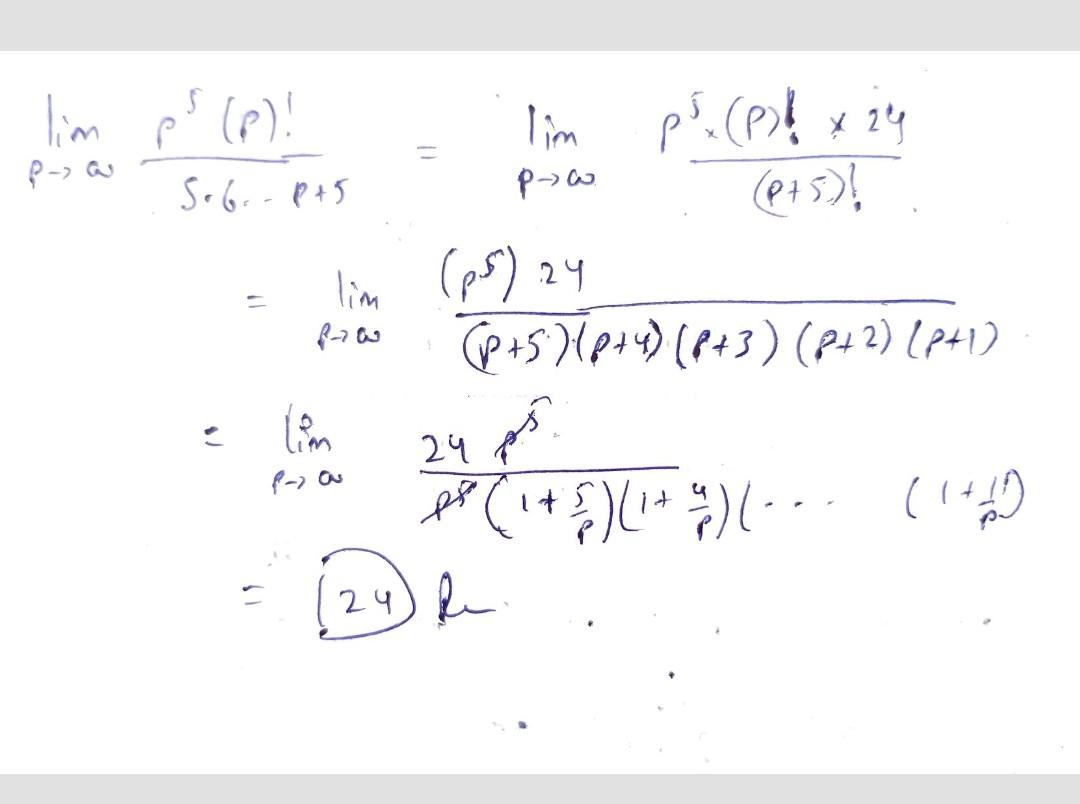 lim p→∞ p^5 (p)! / 5·6... p+5 = lim p→∞ p^5 × (p)! × 24 / (p+5)!
= lim p→∞ (p^5) 24 / (p+5)(p+4)(p+3)(p+2)(p+1)
= lim p→∞ 24 p^5 / p^5 (1 + 5/p)(1 + 4/p)(... (1 + 1/p)
= 24